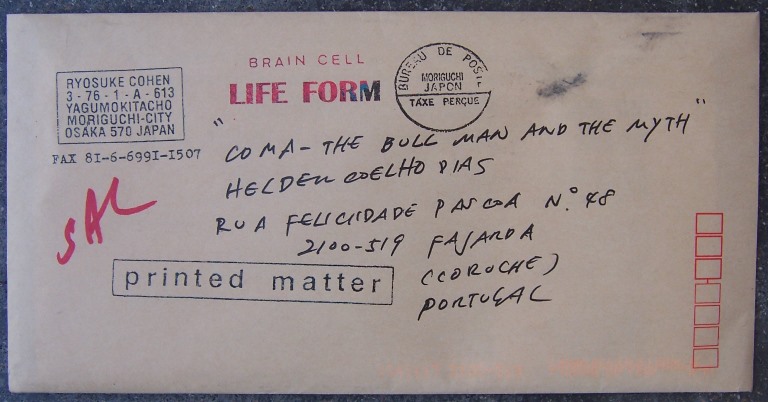 RYOSUKE COHEN
3-76-1-A-613
YAGUMOKITACHO
MORIGUCHI-CITY
OSAKA 570 JAPAN
FAX 81-6-6991-1507
BRAIN CELL
LIFE FORM
BUREAU DE POSTE
MORIGUCHI
JAPON
TAXE PERÇUE
SAL
"COMA-THE BULL MAN AND THE MYTH"
HELDER COELHO DIAS
RUA FELICIDADE PASCOA Nº 48
2100-519 FAJARDA
(CORUCHE)
PORTUGAL
printed matter